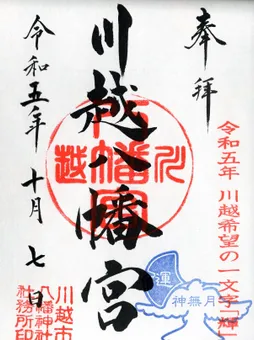 奉拝
令和五年 川越希望の一文字「輝」
川越八幡宮
令和五年 十月 七日
川越
八幡宮
川越市
八幡神社
社務所印
運
神無月